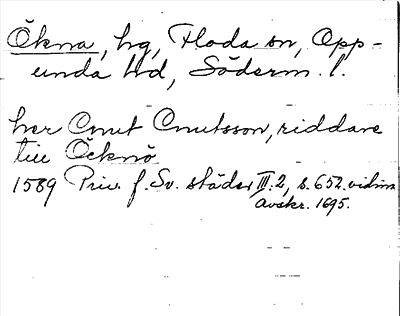 Ökna, hg, Floda sn, Opp-
unda hd, Söderm. l.
her Cnut Cnutsson, riddare
till Öcknö
1589 Priv. f. Sv. städer III:2, s. 652. vidim.
avskr. 1695.